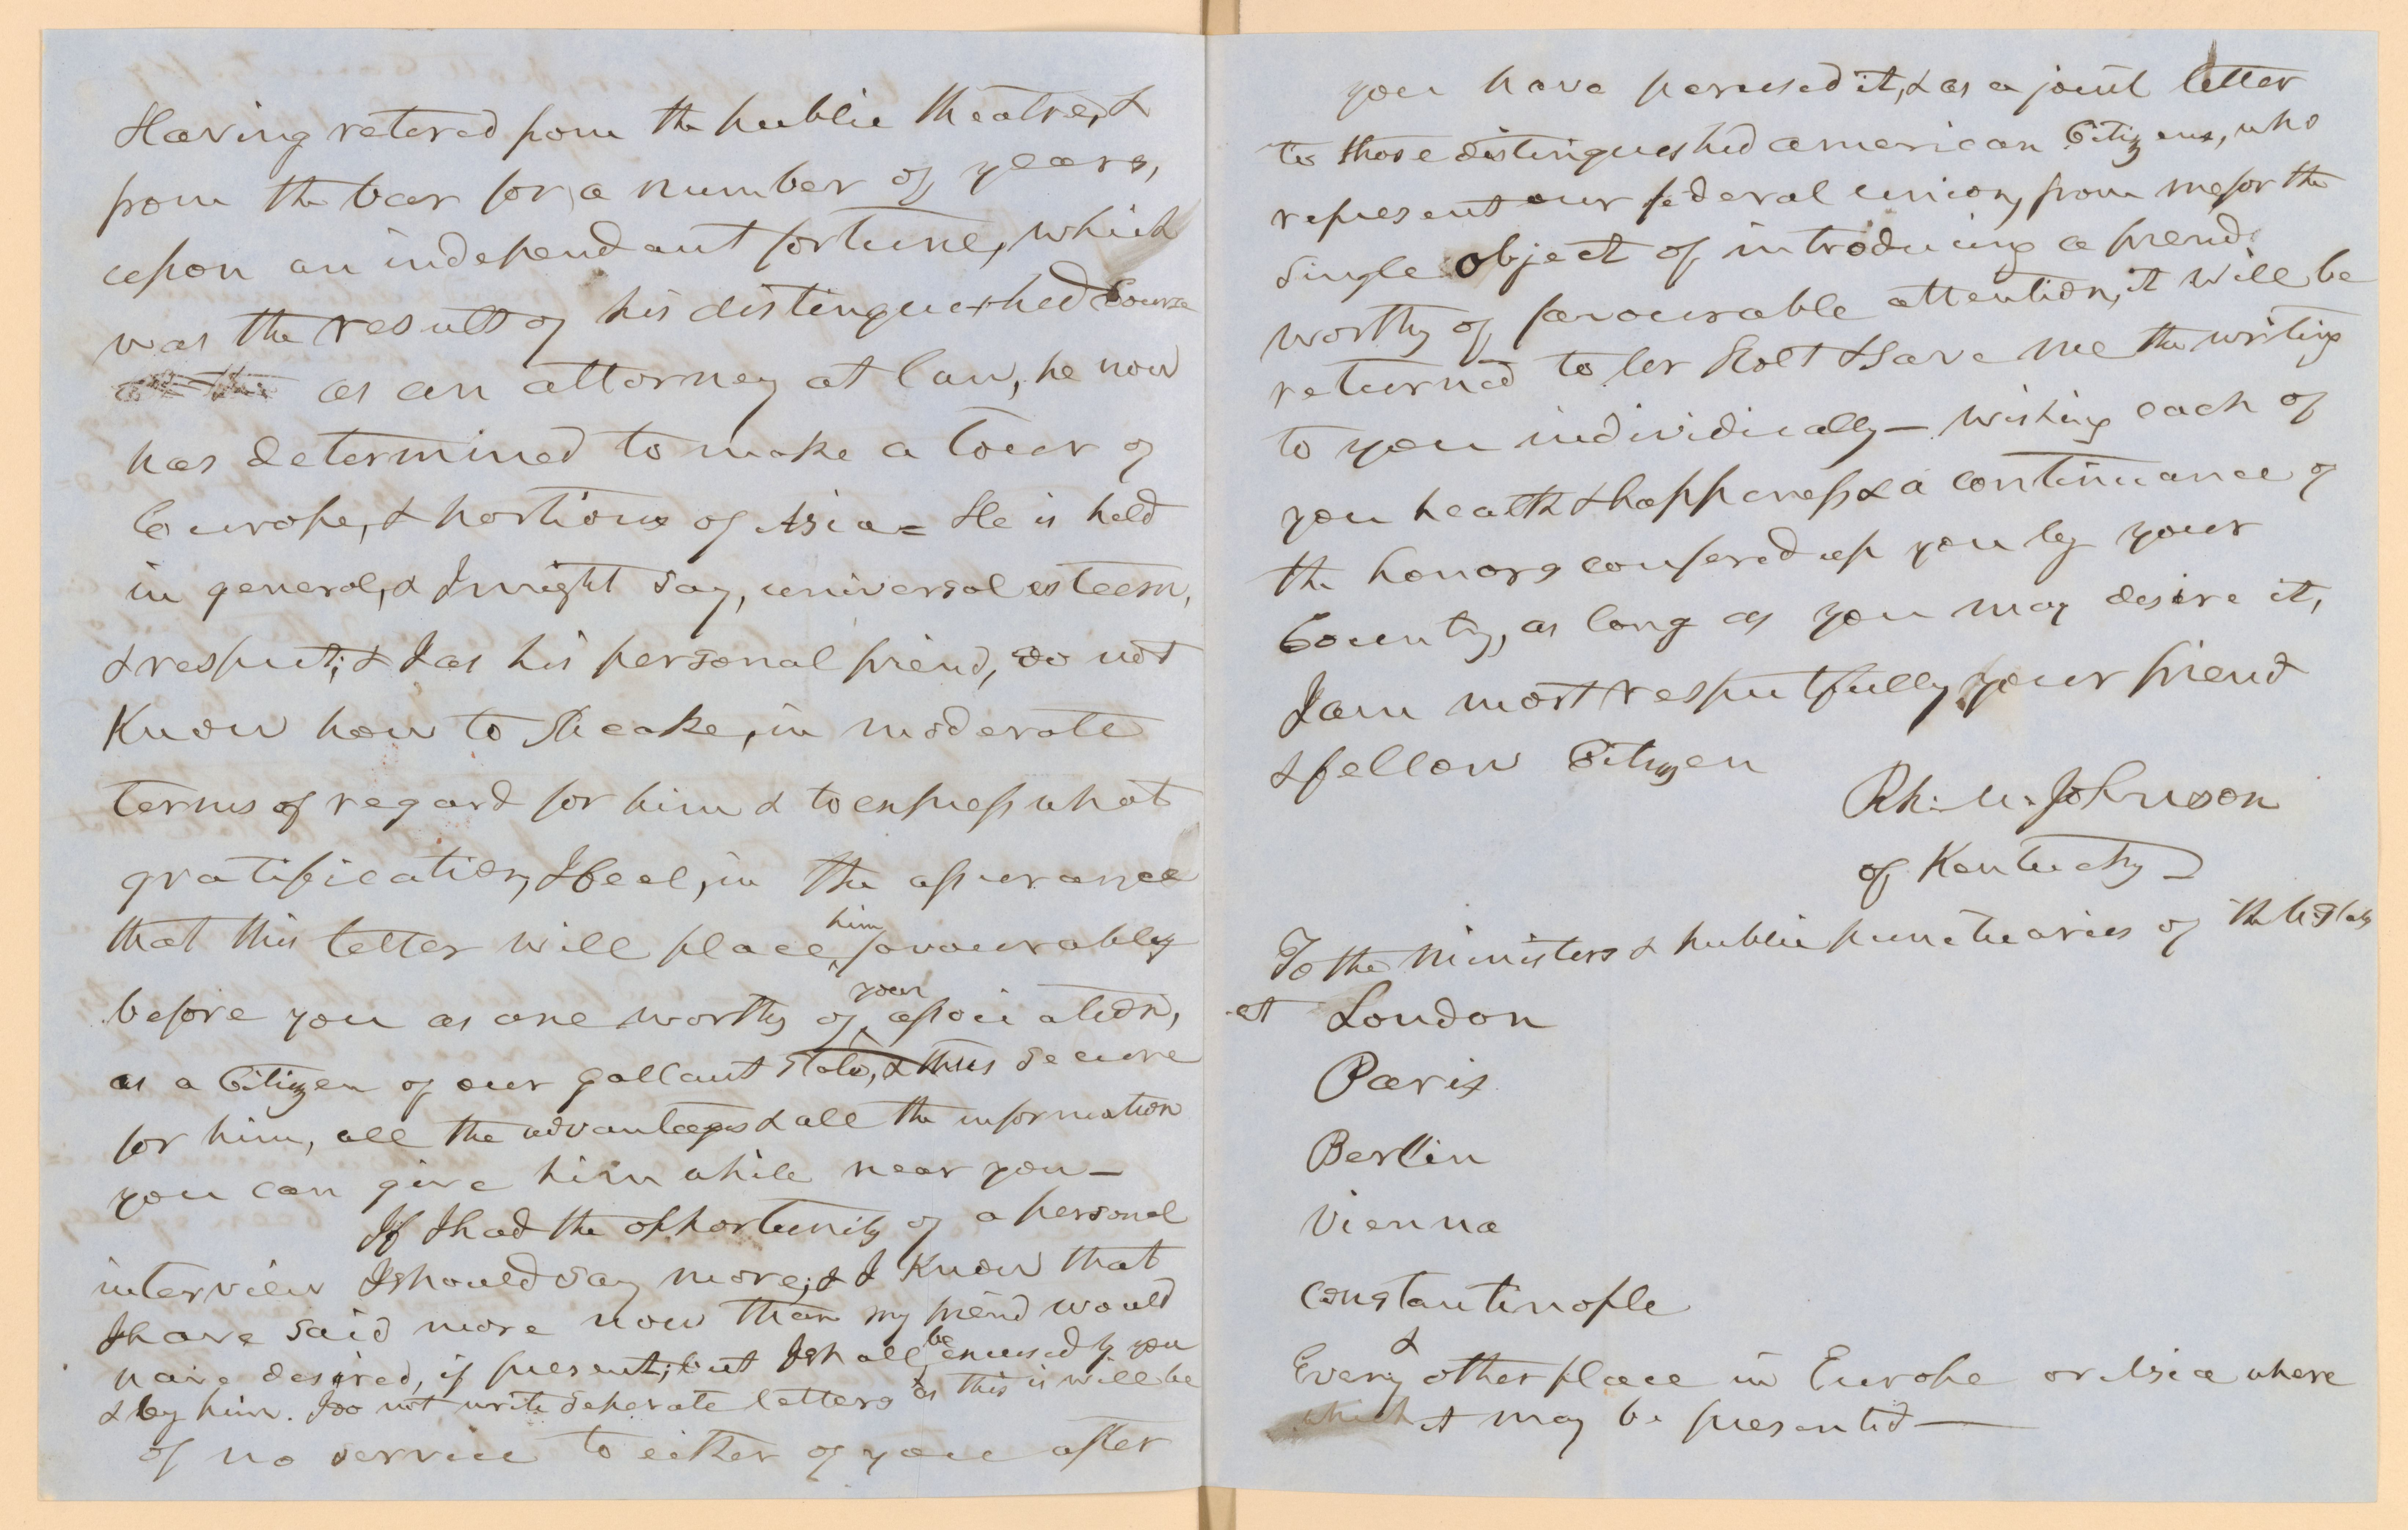 Having retered from the public theatre, &
from the bar for a number of years,
upon an independant fortune, which
was the result of his distinguished Course
as an attorney at law, he now
has determined to make a Tour of
Europe, & portions of Asia = He is held
in general, & I might say, universal esteem,
& respect; & I as his personal friend, do not
Know how to speake, in moderate
terms of regard for him & to express what
gratification, I feel, in the assurance
that this letter will place him favourably
before you as one worthy of your association,
as a Citizen of our gallant State, & thus secure
for him, all the advantages & all the information
you can give him while near you —
If I had the opportunity of a personal
interview I should say more; & I Know that
I have said more now than my friend would
have desired, if present; but I shall be excused by you
& by him. I do not write seperate letters as this is will be
of no service to either of you after
you have perused it, & as a joint letter
to those distinguished american Citizens, who
represent our federal union, from me for the
single object of introducing a friend
worthy of favourable attention, it will be
returned to Mr Holt & save me the writing
to you individually — Wishing each of
you health & happiness & a continuance of
the honors confered up you by your
County, as long as you may desire it,
I am most respectfully your friend
& fellow Citizen
Rh: M. Johnson
of Kentucky
To the Ministers & public functuaries of the U States
at London
Paris
Berlin
Vienna
Constantinople
&
Every other place in Europe or Asia where
which it may be presented —